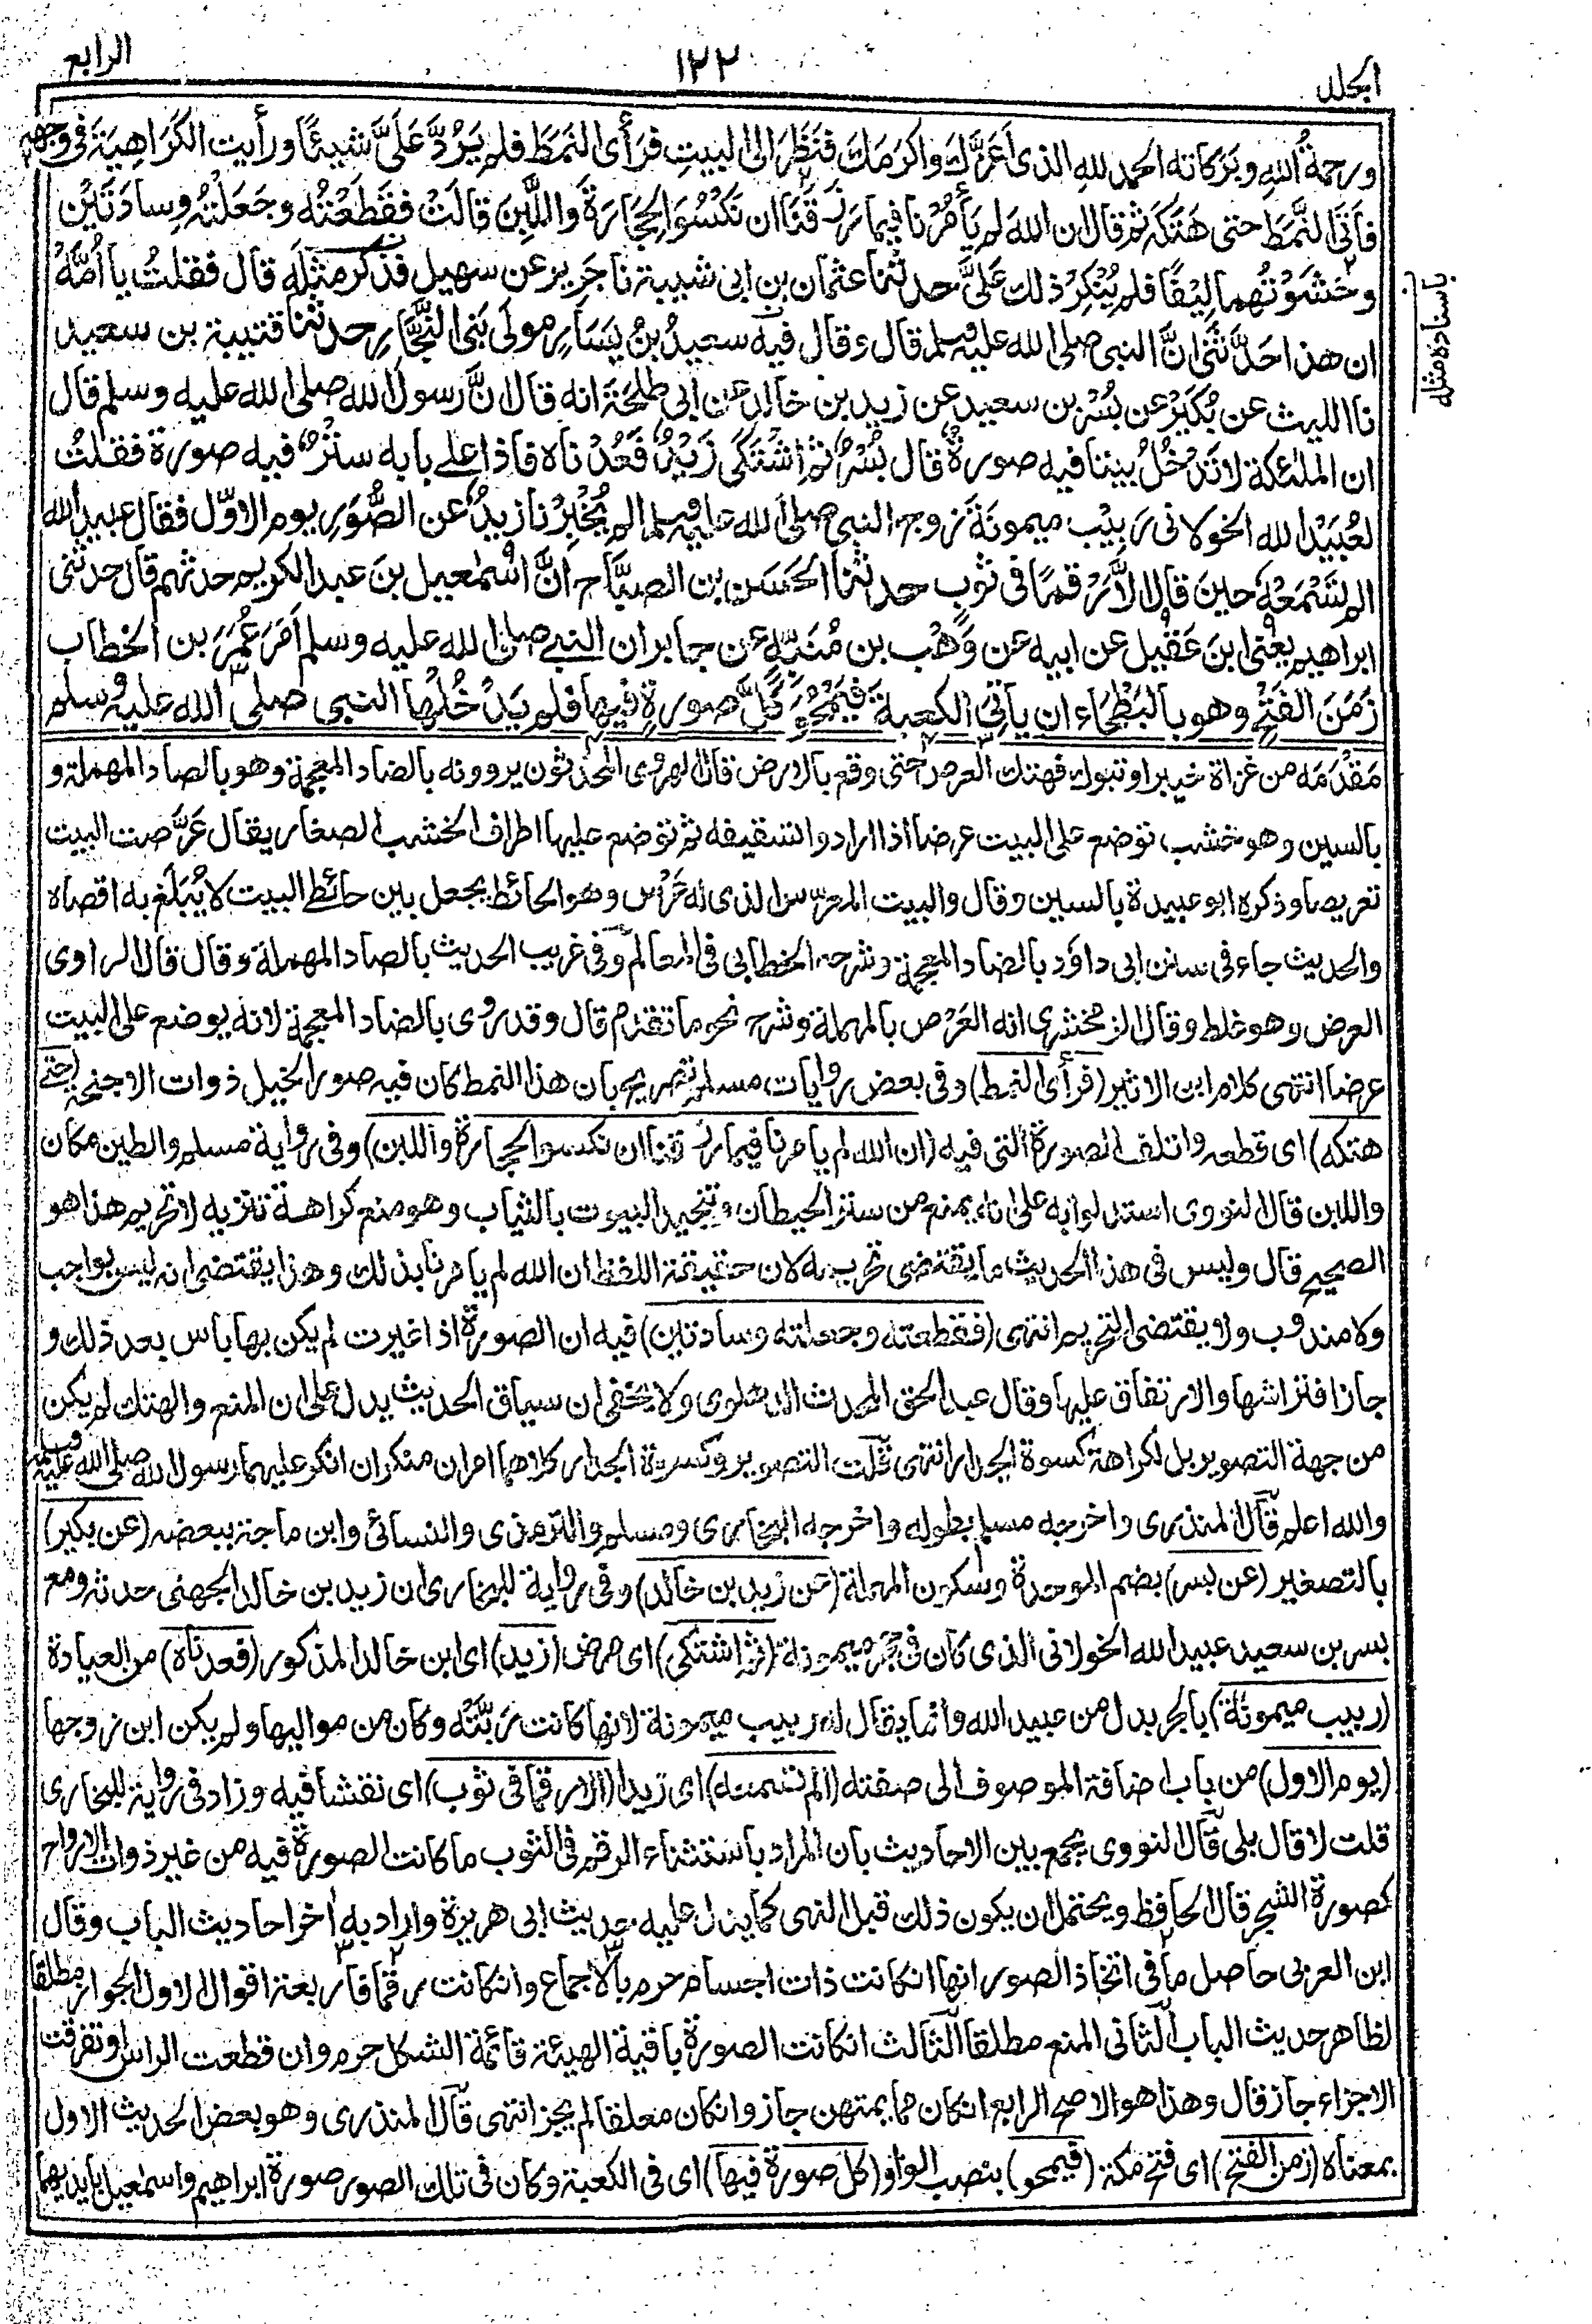 الرابع
١٢٢
المجلد
ورحمةُ اللهِ وبَرَكاته الحمد للهِ الذى اَعَزَّكَ واكرَمَكَ فنَظَرَ الى البيتِ فرَأى النَمَطَ فلم يَرُدَّ عَلَىَّ شيئًا ورأيت الكَرَاهِيَةَ فى وَجهه
فاَتَى النَّمَطَ حتى هَتَكَه ثم قال ان اللهَ لم يَأمُرْنا فيما رَزَقَنَا ان نَكسُوَ الحِجَارَةَ واللَّبِنَ قالَتْ فقَطَعْتُه وجَعَلْتُه وِسادَتَيْن
وحَشَوْتُهما لِيْفًا فلم يُنْكِرْ ذلك عَلَىَّ حدثنا عثمان بن ابى شيبة نا جَرير عن سهيل فذكر مثلَه قال فقلتُ يا اُمَّهْ
باسناده مثله
ان هذا حَدَّثَنى انَّ النبى صلى الله عليه وسلم قال وقال فيه سعيدُ بنُ يَسَارٍ مولَى بَنى النَّجَّارِ حدثنا قتيبة بن سعيد
نا الليث عن بُكَيْر عن بُسْر بن سعيد عن زيد بن خالد عن ابى طلحَةَ انه قال انَّ رسولَ الله صلى الله عليه وسلم قال
ان الملئكة لا تَدْخُلُ بيتا فيه صورةٌ قال بُسْرٌ ثم اشْتَكَى زَيْدٌ فَعُدْناه فاذا على بابه ستْرٌ فيه صورة فقلتُ
لعُبَيْد الله الخولانى رَبِيْب ميمونَةَ زوجِ النبى صلى الله عليه وسلم الم يُخْبِرْنا زيدٌ عن الصُّوَرِ يوم الاوّل فقال عبيد الله
الم تَسْمَعْهُ حينَ قال الاَّ رَقْمًا فى ثوبٍ حدثنا الحَسَن بن الصبَّاح اَنَّ اسْمٰعيل بنَ عبد الكريم حدثهم قال حدثنى
ابراهيم يعْنى ابنَ عَقِيل عن ابيه عن وَهْب بن مُنَبِّهٍ عن جابر ان النبى صلى الله عليه وسلم اَمَرَ عُمَرَ بن الخطاب
زَمَنَ الفَتْحِ وهو بالبَطْحاء ان يأتِىَ الكعبةَ فَيَمْحُوَ كُلَّ صورةٍ فيها فلم يَدْخُلْها النبى صلى الله عليه وسلم
مَقْدَمَه من غزاة خيبر او تبوك فهتك العرص حتى وقع بالارض قال الهروى المحدثون يروونه بالضاد المعجمة وهو بالصاد المهملة و
بالسين وهو خشب توضع على البيت عرضا اذا ارادوا تسقيفه ثم توضع عليها اطراف الخشب الصغار يقال عَرَّصت البيت
تعريصا وذكره ابو عبيدة بالسين وقال والبيت المعرّس الذى له عَرْس وهو الحائط يجعل بين حائطى البيت لا يُبلَغ به اقصاه
والحديث جاء فى سنن ابى داود بالضاد المعجمة وشرحه الخطابى فى المعالم وفى غريب الحديث بالصاد المهملة وقال قال الراوى
العرض وهو غلط وقال الزمخشرى انه العَرْص بالمهملة وشرح نحو ما تقدم قال وقد روى بالضاد المعجمة لانه يوضع على البيت
عرضا انتهى كلام ابن الاثير (فرأى النمط) وفى بعض روايات مسلم تصريح بان هذا النمط كان فيه صور الخيل ذوات الاجنحة (حتى
هتكه) اى قطعه واتلف الصورة التى فيه (ان الله لم يامرنا فيما رزقنا ان نكسو الحجارة واللبن) وفى رواية مسلم والطين مكان
واللبن قال النووى استدلوا به على انه يمنع من ستر الحيطان وتنجيد البيوت بالثياب وهو منع كراهة تنزيه لا تحريم هذا هو
الصحيح قال وليس فى هذا الحديث ما يقتضى تحريمه لان حقيقة اللفظ ان الله لم يامرنا بذلك وهذا يقتضى انه ليس بواجب
ولا مندوب ولا يقتضى التحريم انتهى (فقطعته وجعلته وسادتين) فيه ان الصورة اذا غيرت لم يكن بها باس بعد ذلك و
جاز افتراشها والارتفاق عليها وقال عبد الحق المحدث الدهلوى ولا يخفى ان سياق الحديث يدل على ان المنع والهتك لم يكن
من جهة التصوير بل لكراهة كسوة الجدار انتهى قلت التصوير وكسوة الجدار كلاهما امران منكران انكر عليهما رسول الله صلى الله عليه وسلم
والله اعلم قال المنذرى واخرجه مسلم بطوله واخرجه البخارى ومسلم والترمذى والنسائى وابن ماجة ببعضه (عن بكير)
بالتصغير (عن بسر) بضم الموحدة وسكون المهملة (عن زيد بن خالد) وفى رواية للبخارى ان زيد بن خالد الجهنى حدثه ومع
بسر بن سعيد عبيد الله الخولانى الذى كان فى حجر ميمونة (ثم اشتكى) اى مرض (زيد) اى ابن خالد المذكور (فعدناه) من العيادة
(ربيب ميمونة) بالجر بدل من عبيد الله وانما يقال له ربيب ميمونة لانها كانت رَبَّتْه وكان من مواليها ولم يكن ابن زوجها
(يوم الاول) من باب اضافة الموصوف الى صفته (الم تسمعه) اى زيدا (الا رقما فى ثوب) اى نقشا فيه وزاد فى رواية للبخارى
قلت لا قال بلى قال النووى يجمع بين الاحاديث بان المراد باستثناء الرقم فى الثوب ما كانت الصورة فيه من غير ذوات الارواح
كصورة الشجر قال الحافظ ويحتمل ان يكون ذلك قبل النهى كما يدل عليه حديث ابى هريرة واراد به اخر احاديث الباب وقال
ابن العربى حاصل ما فى اتخاذ الصور انها ان كانت ذات اجسام حرم بالاجماع وان كانت رقما فاربعة اقوال الاول الجواز مطلقا
لظاهر حديث الباب الثانى المنع مطلقا الثالث ان كانت الصورة باقية الهيئة قائمة الشكل حرم وان قطعت الراس وتفرقت
الاجزاء جاز قال وهذا هو الاصح الرابع ان كان مما يمتهن جاز وان كان معلقا لم يجز انتهى قال المنذرى وهو بعض الحديث الاول
بمعناه (زمن الفتح) اى فتح مكة (فيمحو) بنصب الواو (كل صورة فيها) اى فى الكعبة وكان فى تلك الصور صورة ابراهيم واسمعيل بايديهما